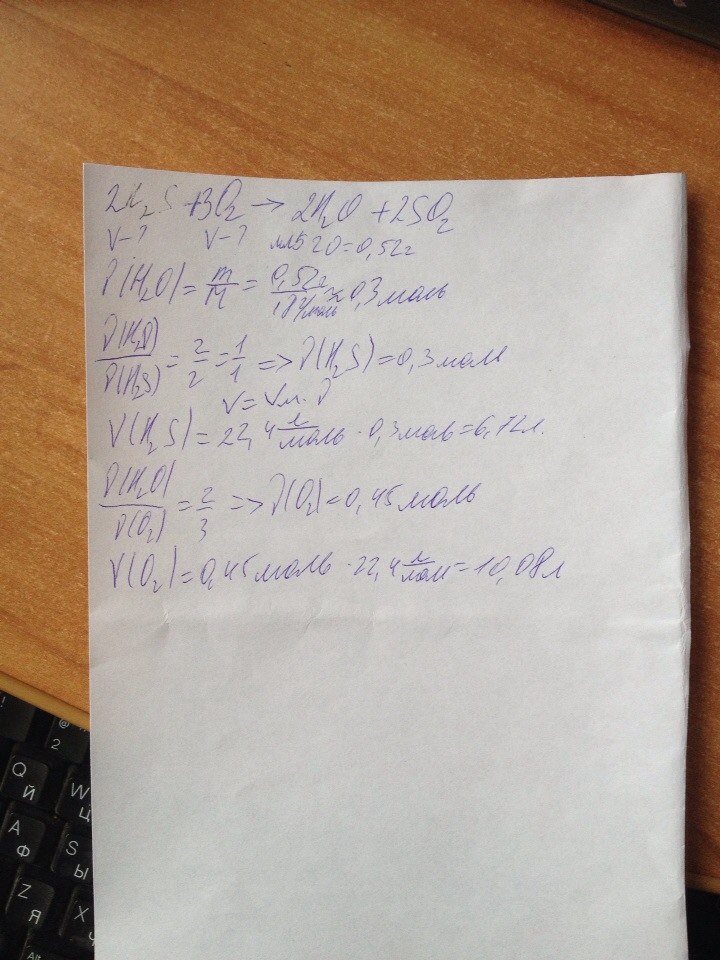 2H₂S + 3O₂ → 2H₂O + 2SO₂
V-? V-? =0,52г
ν(H₂O) = m/M = 0,52г/18г/моль ≈ 0,3моль
ν(H₂O)/ν(H₂S) = 2/2 = 1/1 => ν(H₂S) = 0,3моль
V = Vм · ν
V(H₂S) = 22,4 л/моль · 0,3моль = 6,72л.
ν(H₂O)/ν(O₂) = 2/3 => ν(O₂) = 0,45моль
V(O₂) = 0,45моль · 22,4 л/моль = 10,08л
!
@
2
Q
Й
W
Ц
A
Ф
S
Ы
Z
Я
X
Ч
Alt